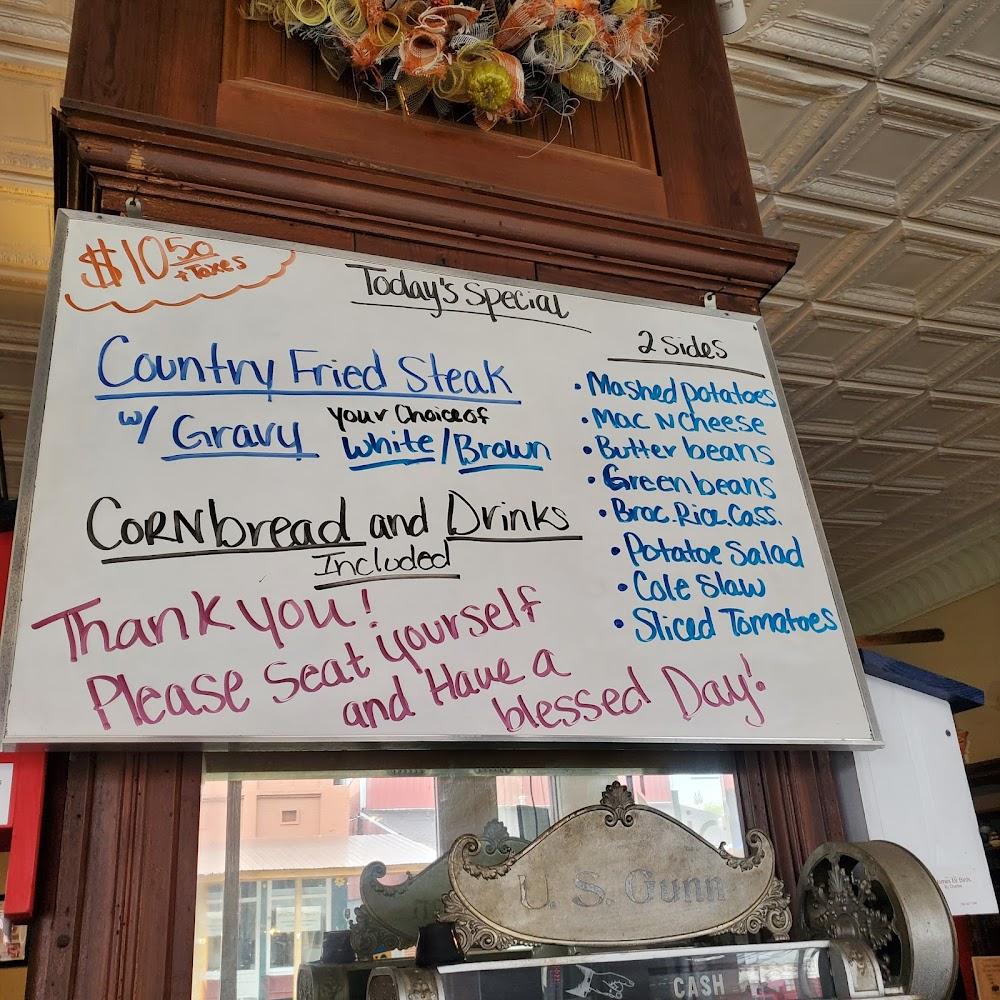 $10 50
+ Taxes
Today's Special
Country Fried Steak
w/ Gravy your Choice of
White/Brown
CORNbread and Drinks
Included
2 Sides
• Mashed potatoes
• Mac N Cheese
• Butter beans
• Green beans
• Broc. Rice. Cass.
• Potatoe Salad
• Cole Slaw
• Sliced Tomatoes
Thank you!
Please Seat yourself
and Have a
blessed Day!
U. S. Gunn
CASH